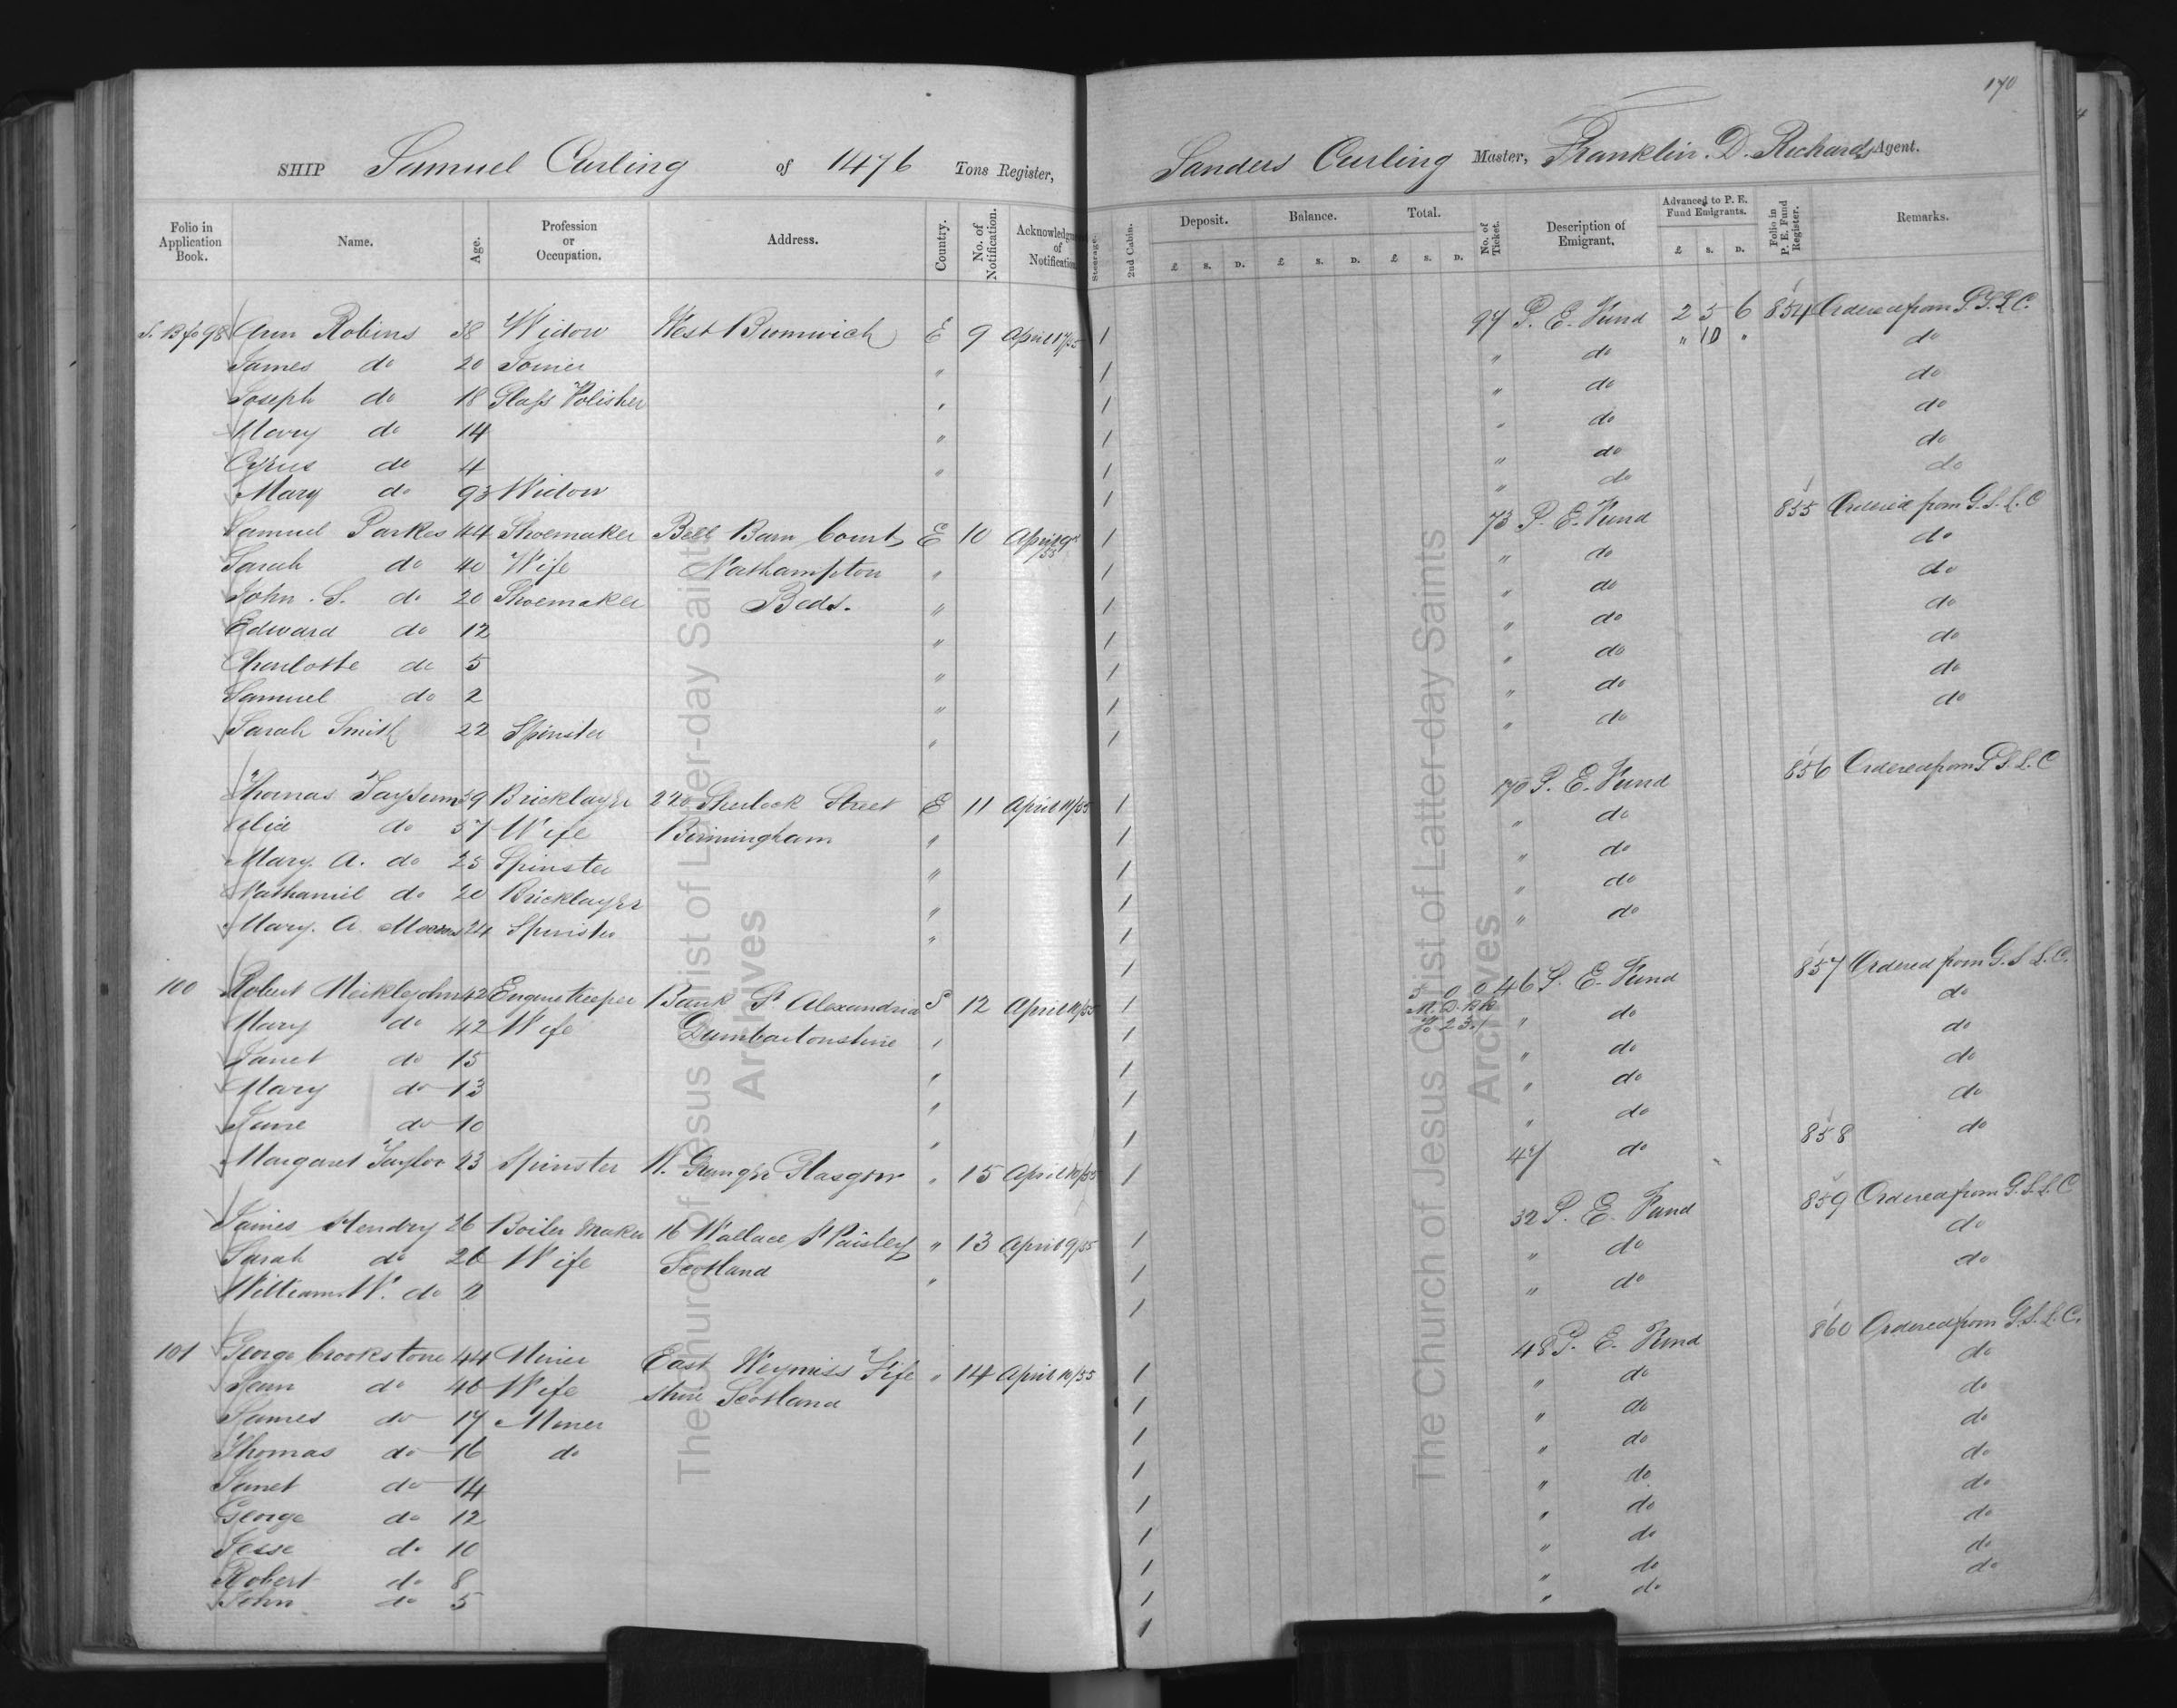 170
SHIP Samuel Curling of 1476 Tons Register, Sanders Curling Master, Franklin. D. Richards Agent.
Folio in Application Book. Name. Age. Profession or Occupation. Address. Country. No. of Notification. Acknowledgm of Notification Steerage. 2nd Cabin. Deposit. £ s. D. Balance. £ s. D. Total. £ s. D. No. of Ticket. Description of Emigrant. Advanced to P. E. Fund Emigrants. £ s. D. Folio in P. E. Fund Register. Remarks.
98 Ann Robins 38 Widow West Bromwich E 9 April 17/55 1 97 P. E. Fund 2 5 6 854 Ordered from G.S.L.C.
James do 20 Joiner " 1 " do " 10 " do
Joseph do 18 Glass Polisher " 1 " do do
Mary do 14 " 1 " do do
Cyrus do 4 " 1 " do do
Mary do 93 Widow 1 " do do
Samuel Parkes 44 Shoemaker Bell Barn Court E 10 April 9 55 1 73 P. E. Fund 855 Ordered from G.S.L.C
Sarah do 40 Wife Northampton " 1 " do do
John. S. do 20 Shoemaker Beds. " 1 " do do
Edward do 12 " 1 " do do
Charlotte do 5 " 1 " do do
Samuel do 2 " 1 " do do
Sarah Smith 22 Spinster " 1 " do do
Thomas 59 Bricklayer 220 Sherlock Street E 11 April 11/55 1 170 P. E. Fund 856 Ordered from G.S.L.C
do 57 Wife Birmingham " 1 " do
Mary. A. do 25 Spinster " 1 " do
Nathaniel do 20 Bricklayer " 1 " do
Mary. A 24 Spinster " 1 " do
100 Robert Meiklejohn 42 Engine Keeper Bank St Alexandria S 12 April 10/55 1 5 0 0 46 P. E. Fund 857 Ordered from G.S.L.C.
Mary do 42 Wife Dumbartonshire " 1 " do do
Janet do 15 " 1 " do do
Mary do 13 " 1 " do do
Jane do 10 " 1 " do do
Margaret Taylor 23 Spinster Glasgow " 15 April 10/55 1 47 do 858 do
James Hendry 26 Boiler Maker 16 Wallace St Paisley " 13 April 9/55 1 32 P. E. Fund 859 Ordered from G.S.L.C
Sarah do 26 Wife Scotland " 1 " do do
William W. do 2 1 " do do
101 George Crookstone 44 Miner East Weymiss Fife " 14 April 10/55 1 48 P. E. Fund 860 Ordered from G.S.L.C.
Jean do 46 Wife shire Scotland 1 " do do
James do 17 Miner 1 " do do
Thomas do 16 do 1 " do do
Janet do 14 1 " do do
George do 12 1 " do do
Jesse do 10 1 " do do
Robert do 8 1 " do do
John do 5 1 " do do
The Church of Jesus Christ of Latter-day Saints Archives
The Church of Jesus Christ of Latter-day Saints Archives